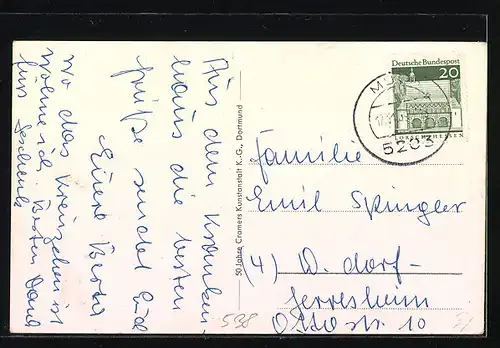 Aus dem Kranken-
haus die besten
Grüße sendet Euch
Eure Berta
wo das Kreuzchen ist
wohne ich. Besten Dank
fürs Geschenk
50 Jahre Cramers Kunstanstalt K.-G., Dortmund
Deutsche Bundespost
20
LORSCH/HESSEN
5203
Familie
Emil Springer
(4) D. dorf-
Gerresheim
Ottostr. 10